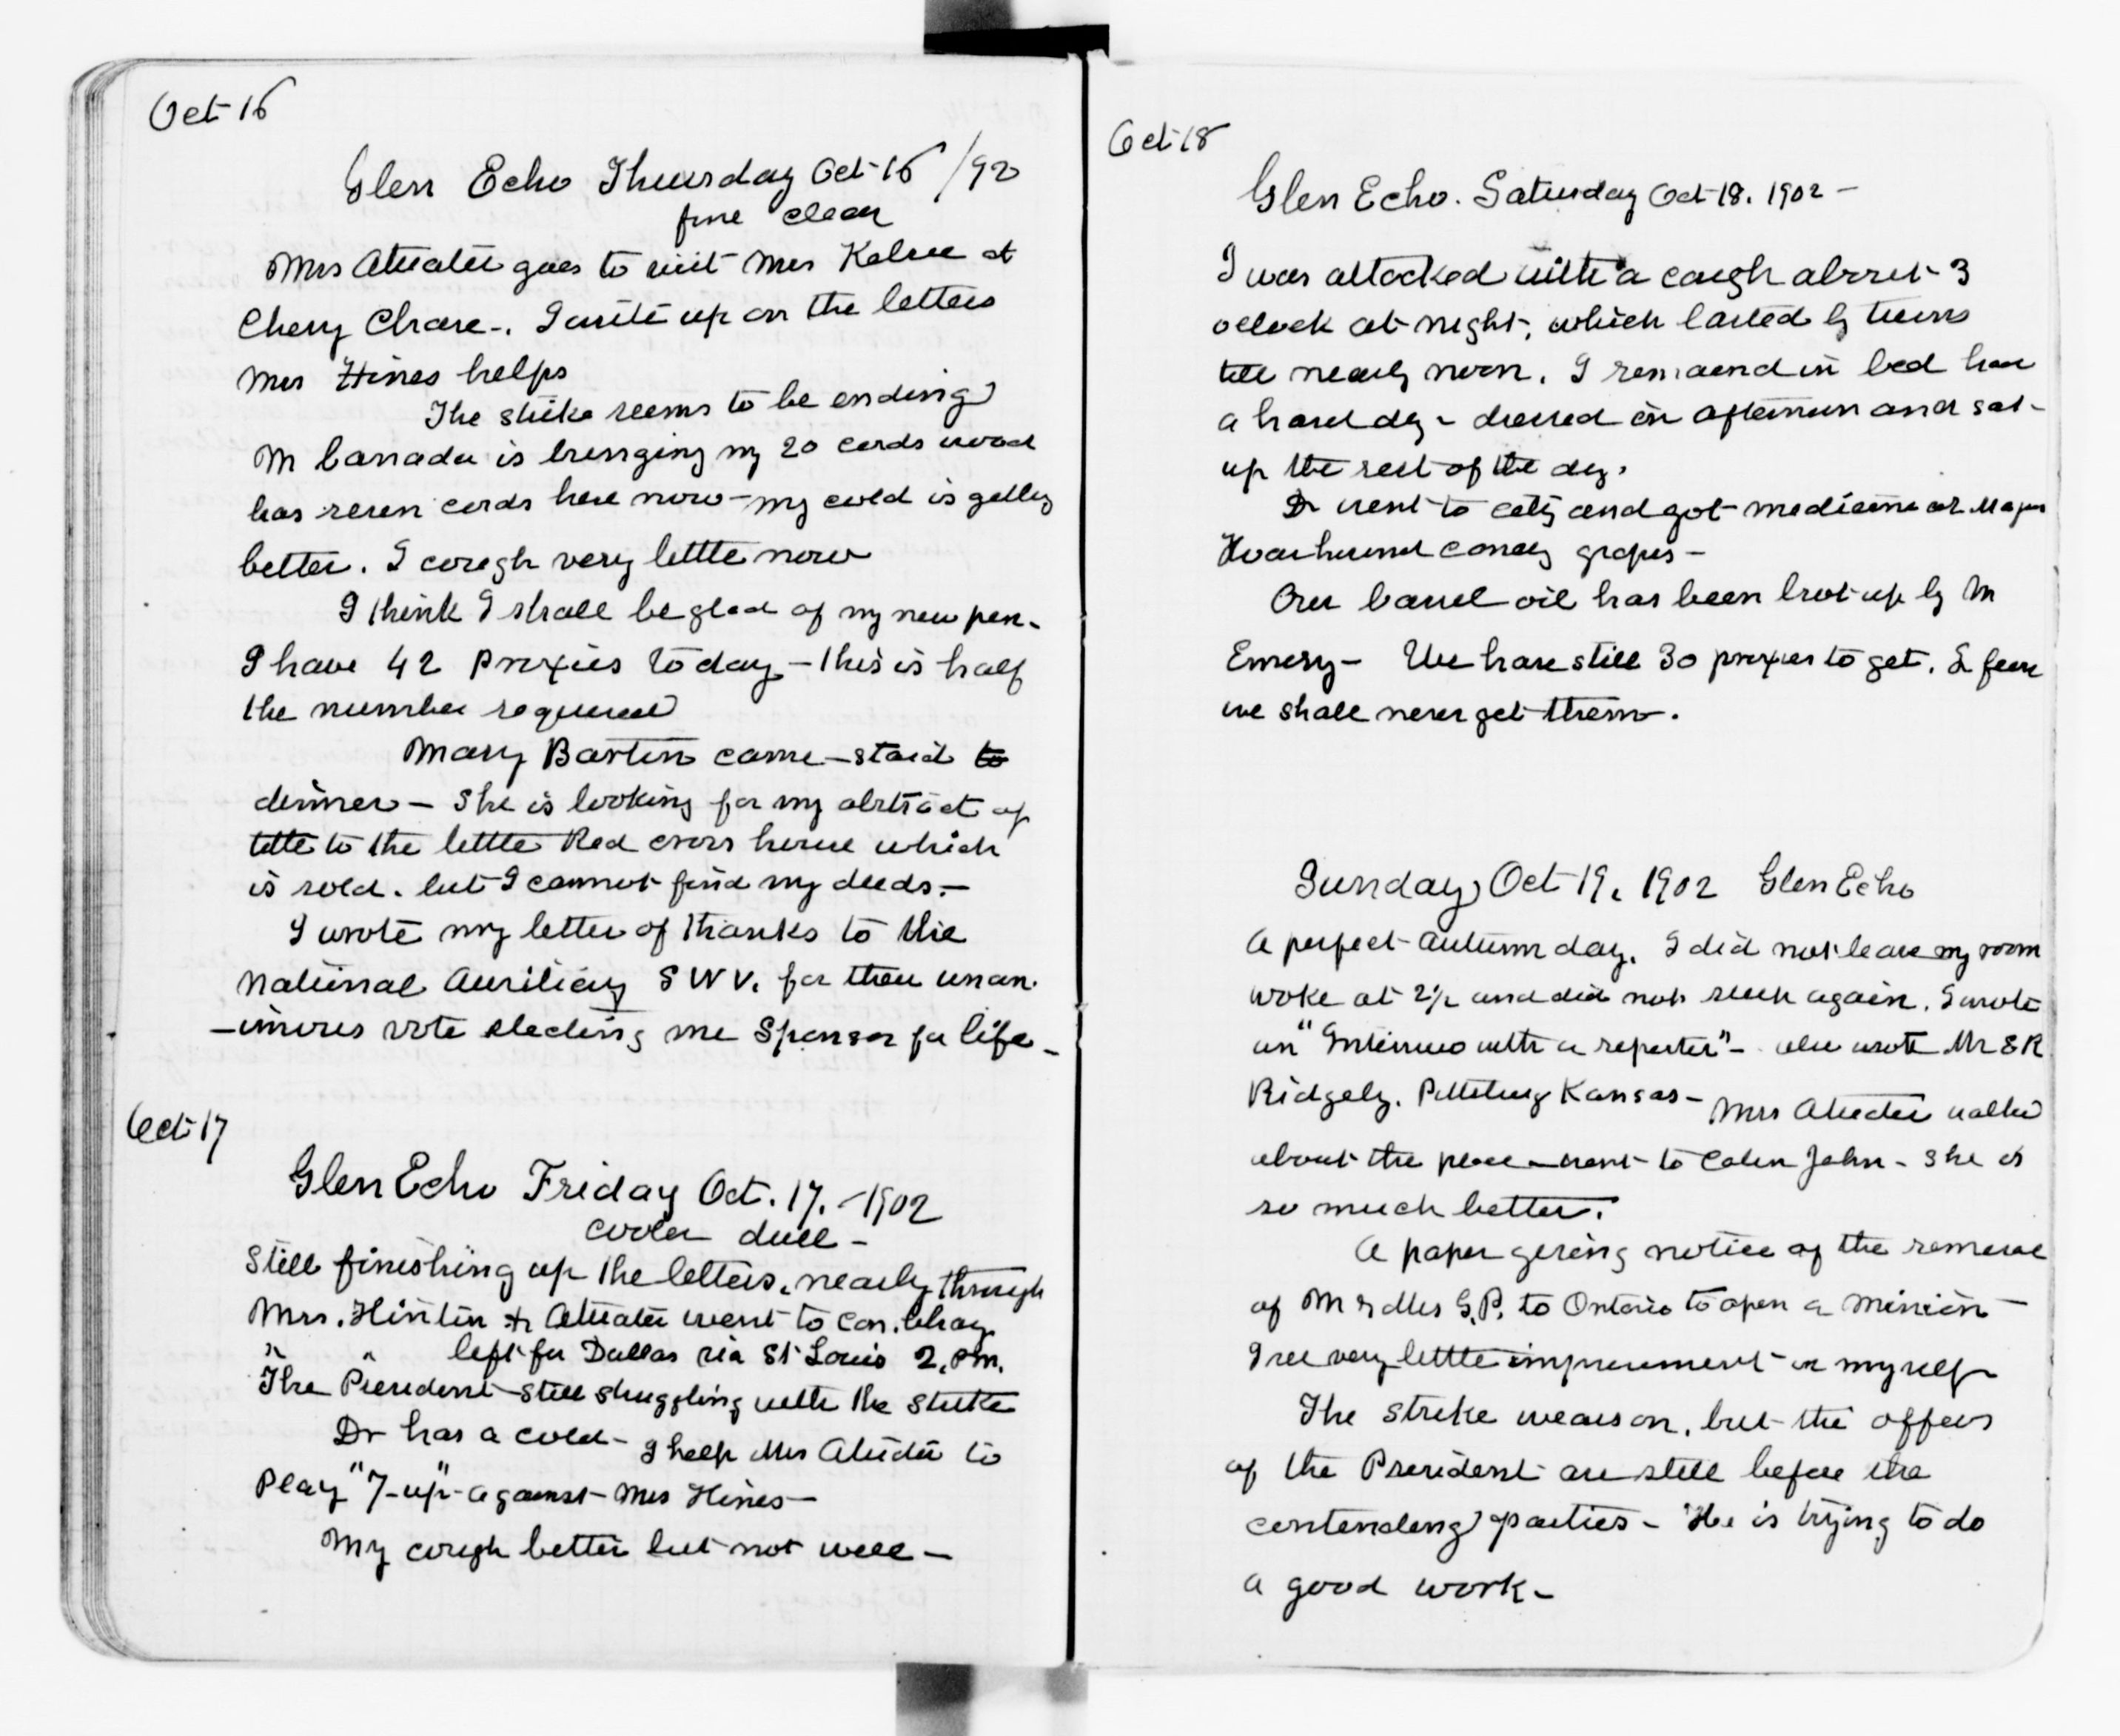 Oct 16
Glen Echo Thursday Oct 16 /92
fine clear
Mrs Atwater goes to visit Mrs Kelsee at
Chevy Chase -. I write up on the letters
Mrs Hines helps
The strike seems to be ending
Mr Canada is bringing my 20 cords wood
has seven cords here now - my cold is getting
better. I cough very little now
I think I shall be glad of my new pen -
I have 42 proxies to day - this is half
the number required
Mary Barton came - staid to
dinner - She is looking for my abstract of
title to the little Red cross house which
is sold. but I cannot find my deeds. -
I wrote my letter of thanks to the
National Auxiliary S W V. for their unan-
-imous vote electing me Sponsor for life -
Oct 17
Glen Echo Friday Oct. 17. - 1902
cooler dull -
Still finishing up the letters. nearly through
Mrs. Hinton & Atwater went to Con.
" " left for Dallas via St Louis 2. P.M.
The President still struggling with the strike
Dr has a cold - I help Mrs Atwater to
Play "7-up" against Mrs Hines -
My cough better but not well -
Oct 18
Glen Echo. Saturday Oct 18. 1902 -
I was attacked with a cough about 3
oclock at night, which lasted by turns
till nearly noon. I remaend in bed had
a hard day - dressed in afternoon and sat
up the rest of the day.
Dr went to city and got medicine at Majors
Hoarhound candy grapes -
Our barrel oil has been brot up by Mr
Emery - We have still 30 proxies to get. I fear
we shall never get them -.
Sunday Oct 19. 1902 Glen Echo
A perfect autumn day. I did not leave my room
woke at 2½ and did not sleep again. I wrote
an "Interview with a reporter" - also wrote Mr E R
Ridgely. Pittsburg Kansas - Mrs Atwater walked
about the place - went to Cabin John - She is
so much better.
A paper giving notice of the removal
of Mr & Mrs G. P. to Ontario to open a Mission -
I see very little improvement in myself
The strike wears on, but the offers
of the President are still before the
contending parties - He is trying to do
a good work -